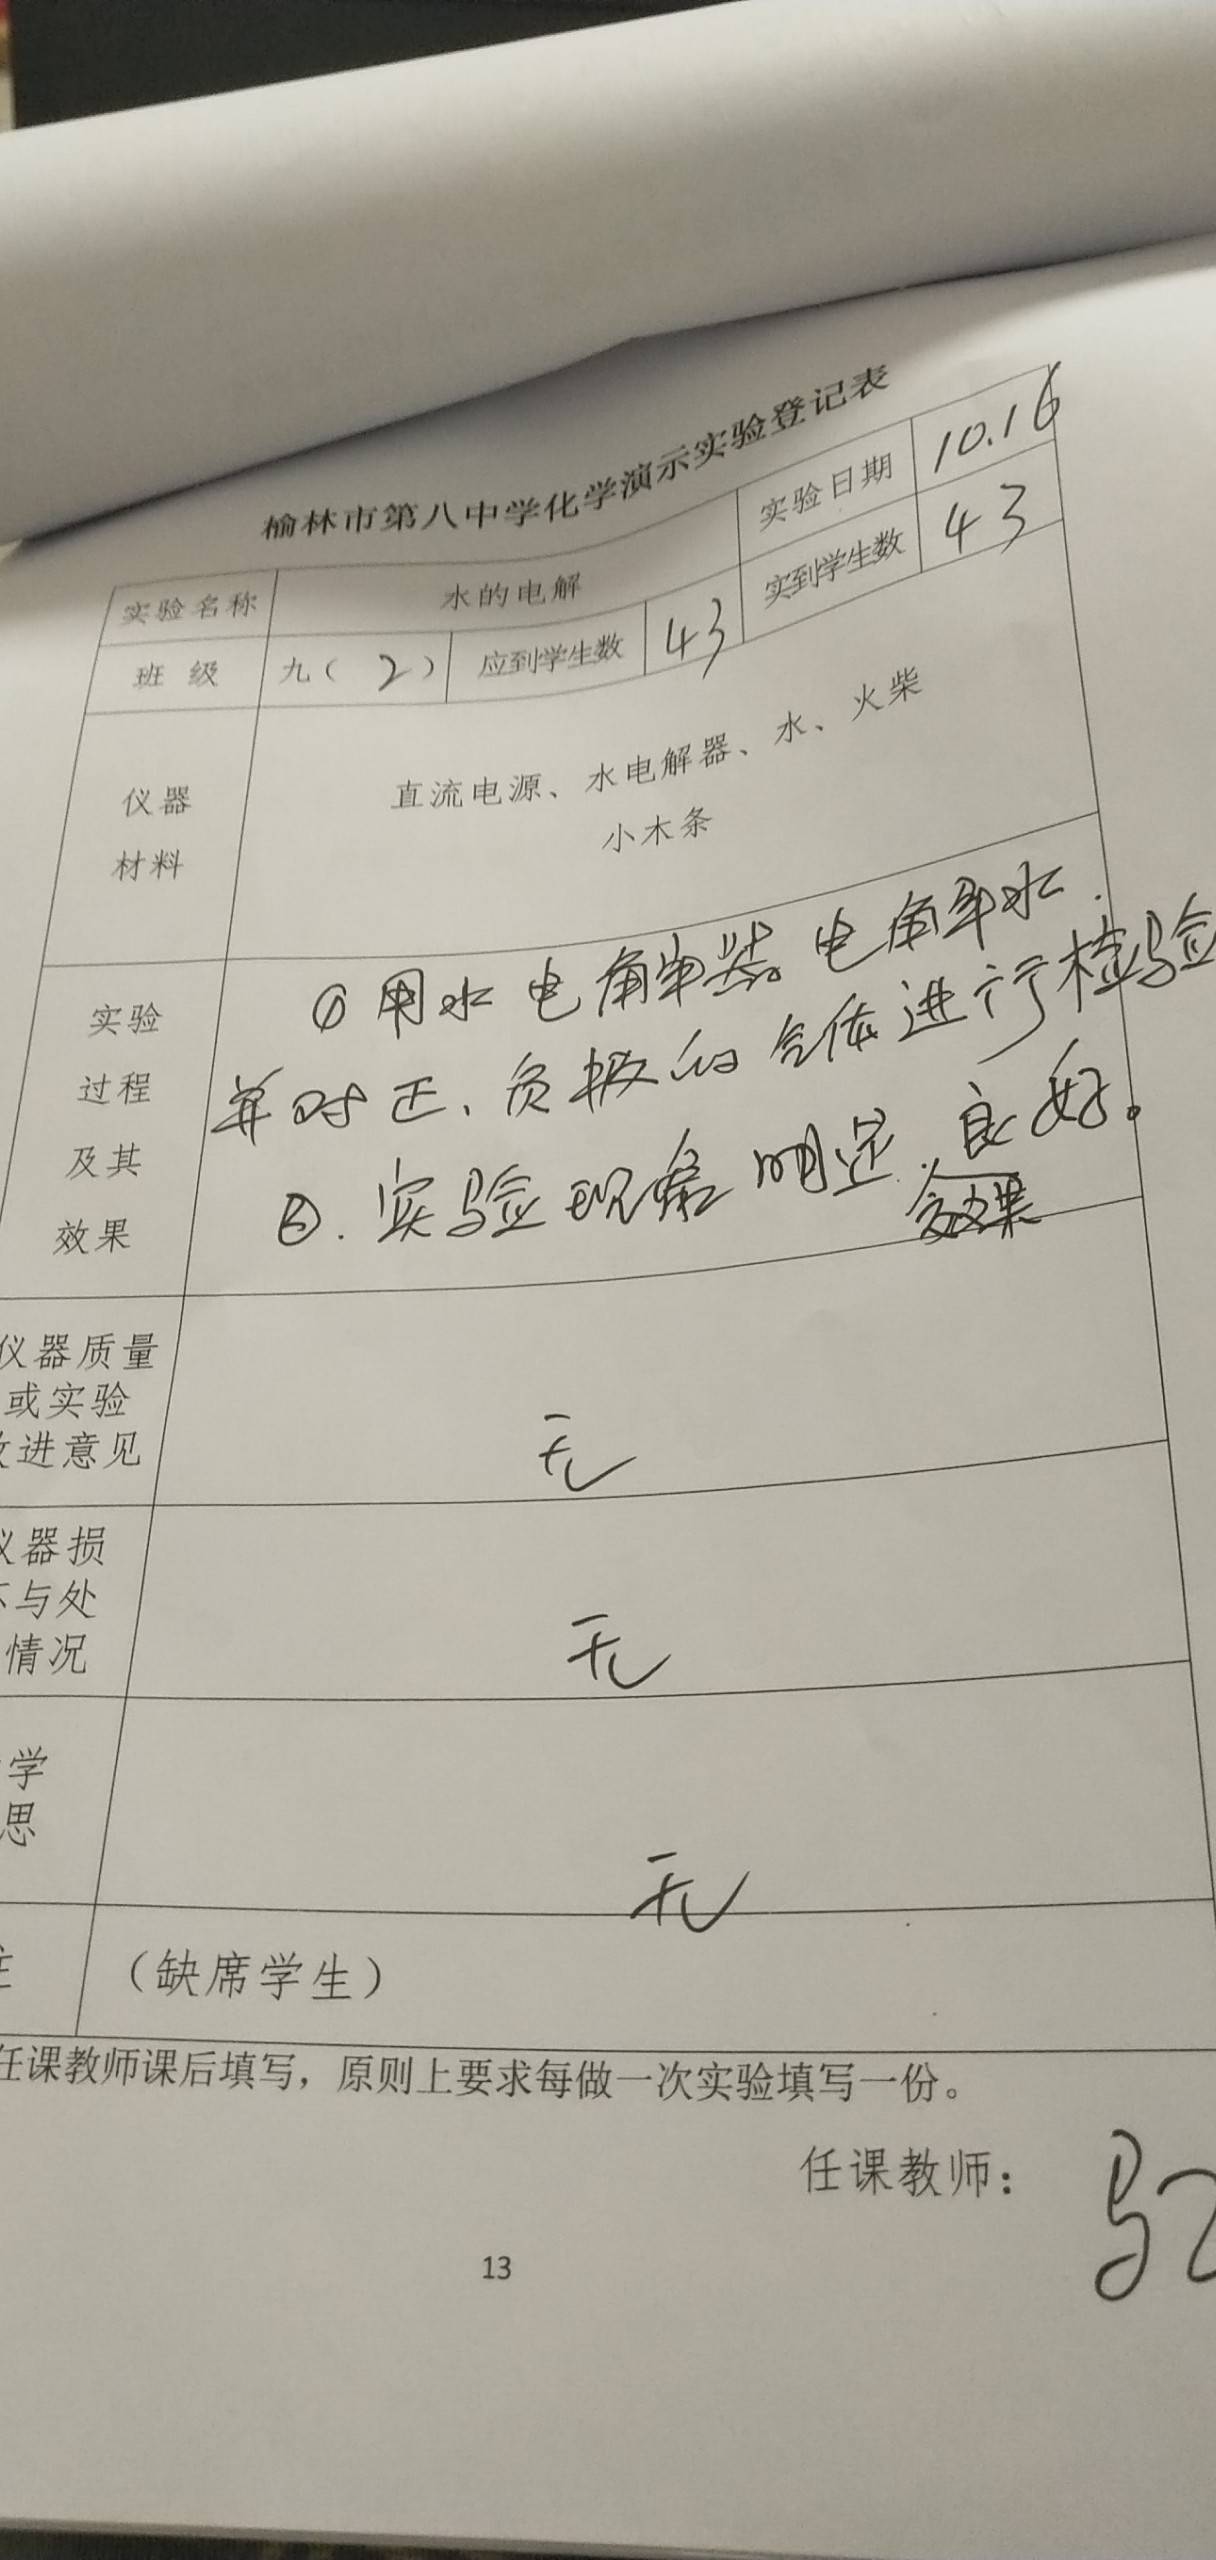 榆林市第八中学化学演示实验登记表
实验名称 水的电解 实验日期 10.16
班 级 九（ 2 ） 应到学生数 43 实到学生数 43
仪器
材料
直流电源、水电解器、水、火柴
小木条
实验
过程
及其
效果
① 用水电解器电解水.
并对正、负极的气体进行检验
②. 实验现象明显, 良好。
效果
仪器质量
或实验
改进意见
无
仪器损
坏与处
情况
无
学
思
无
注 （缺席学生）
任课教师课后填写，原则上要求每做一次实验填写一份。
任课教师：
13